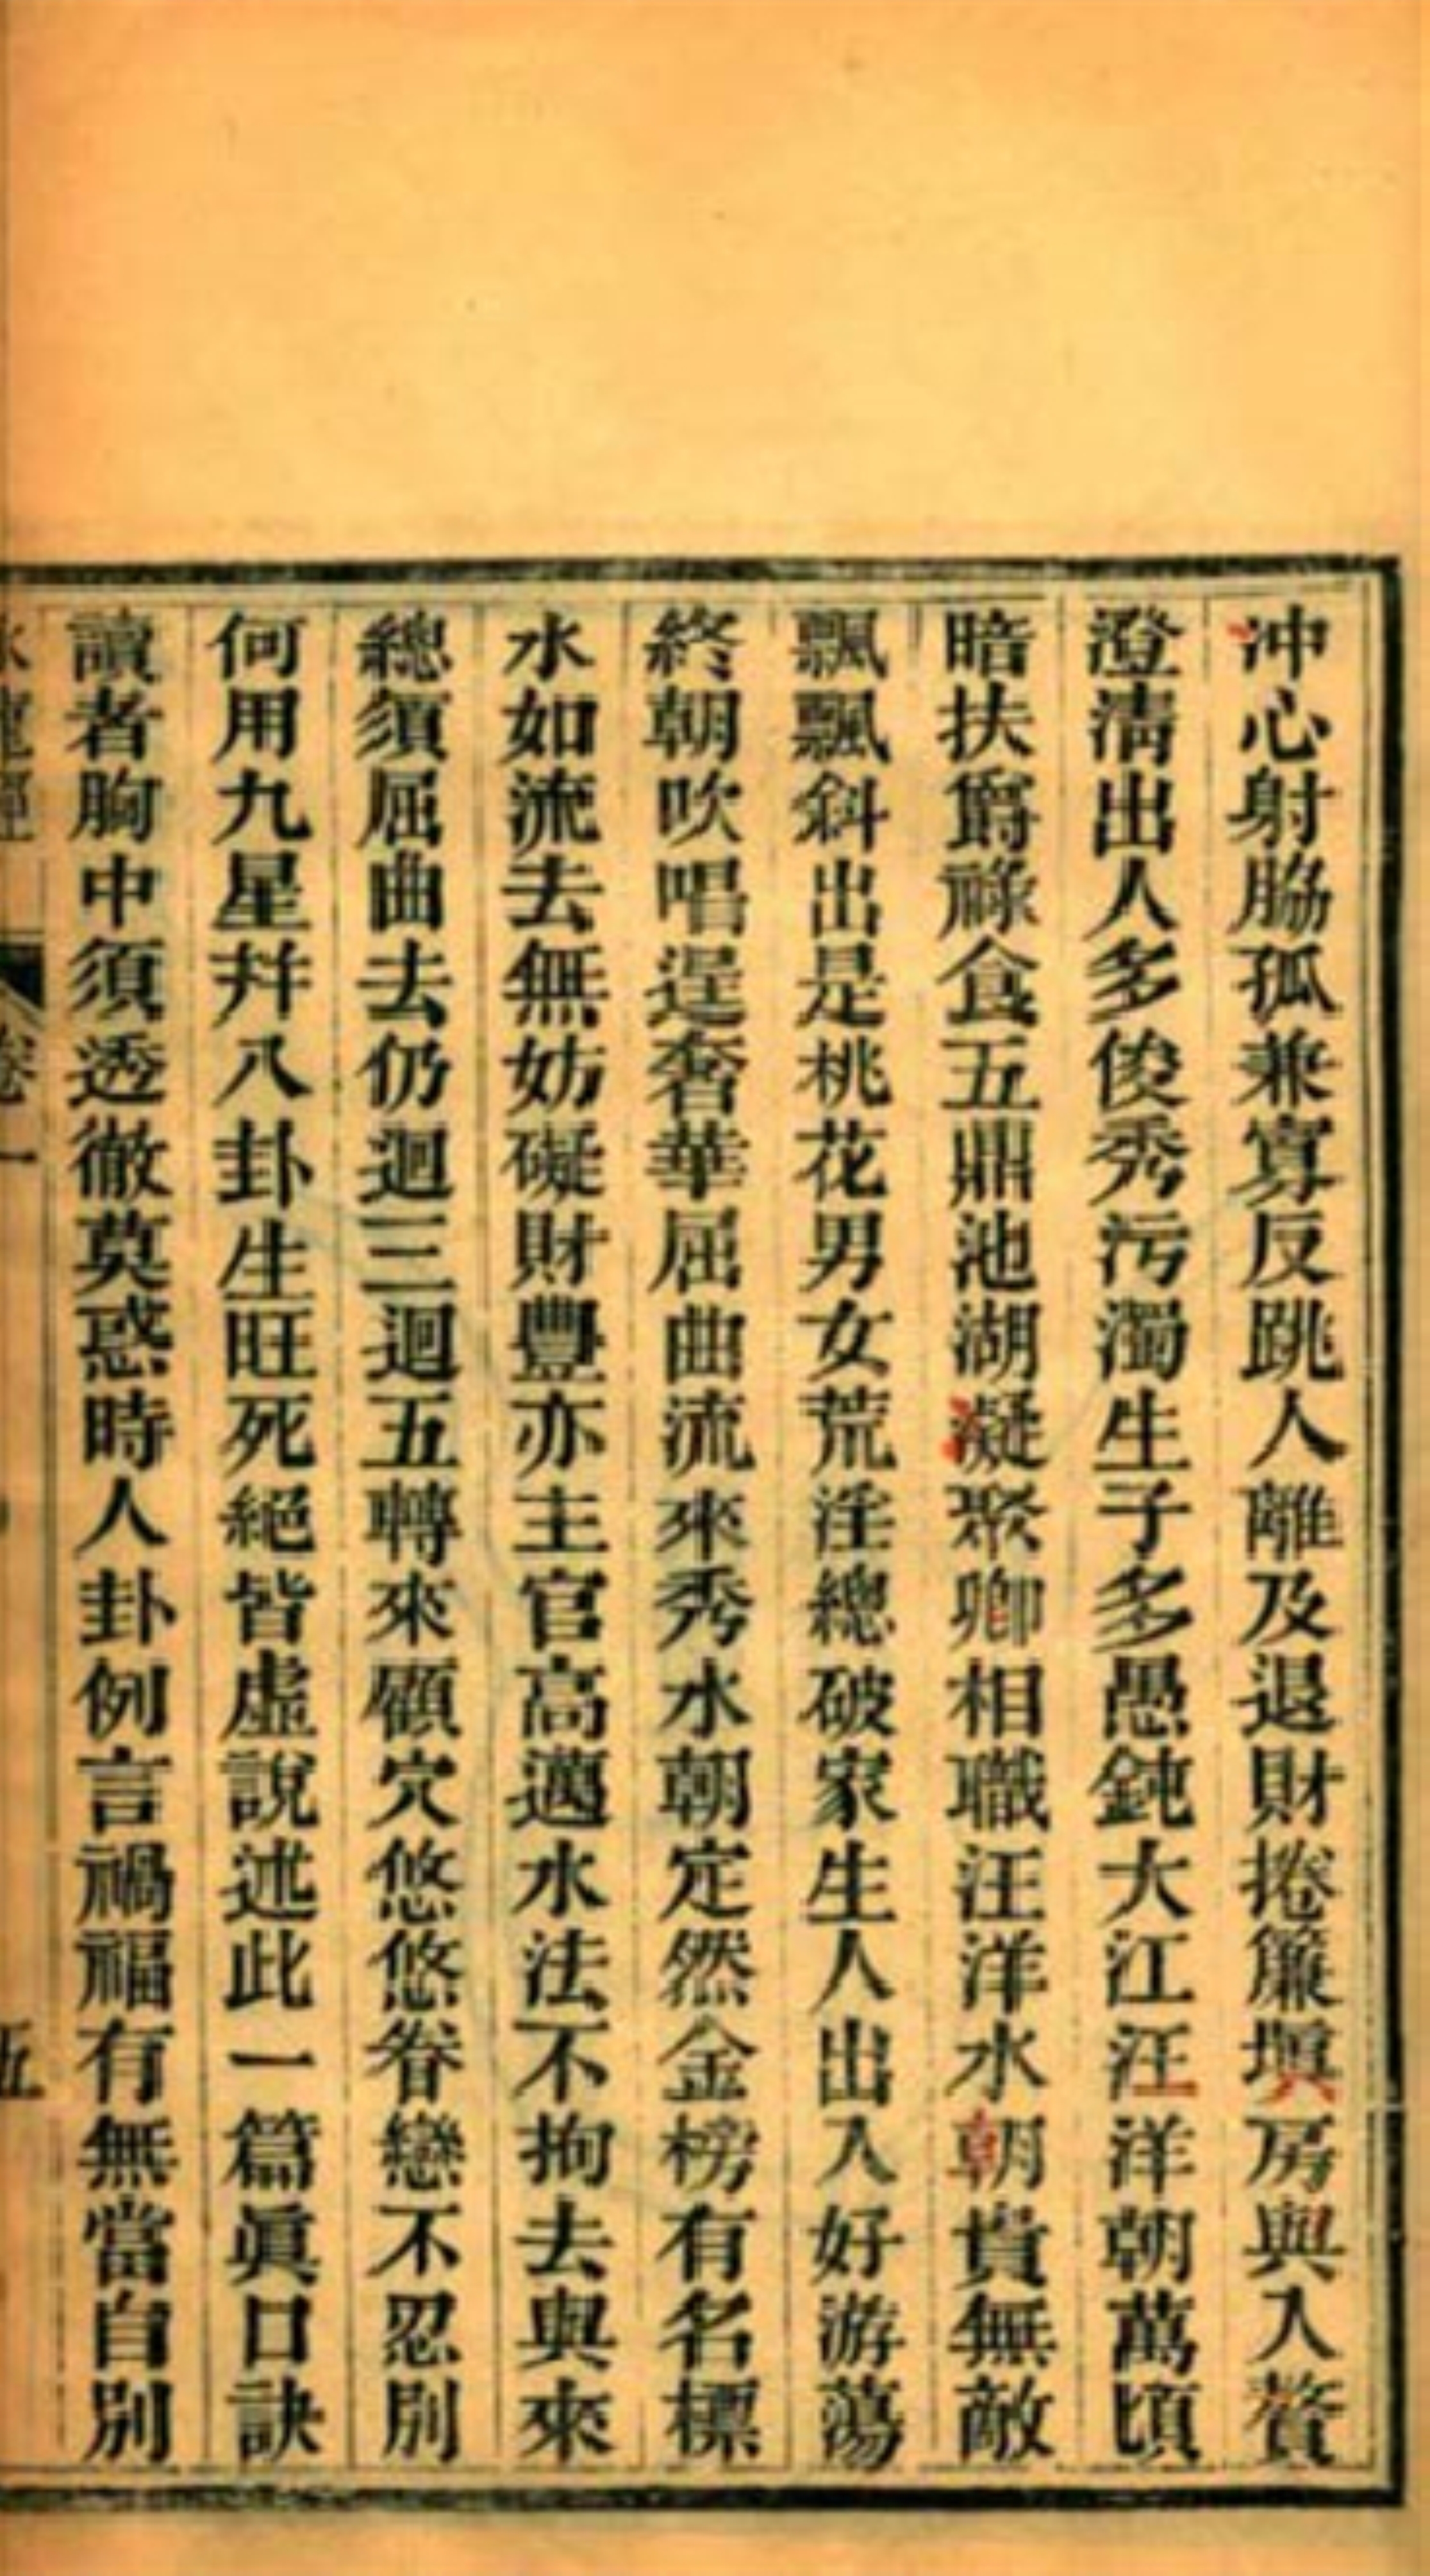 沖心射脇孤兼寡反跳人離及退財捲簾塡房與入贅
澄清出人多俊秀污濁生子多愚鈍大江汪洋朝萬頃
暗扶爵祿食五鼎池湖凝聚卿相職汪洋水朝貴無敵
飄飄斜出是桃花男女荒淫總破家生人出入好游蕩
終朝吹唱逞奢華屈曲流來秀水朝定然金榜有名標
水如流去無妨礙財豐亦主官高邁水法不拘去與來
總須屈曲去仍迴三迴五轉來顧穴悠悠眷戀不忍別
何用九星幷八卦生旺死絕皆虛說述此一篇眞口訣
讀者胸中須透徹莫惑時人卦例言禍福有無當自別
水龍經 卷一 五